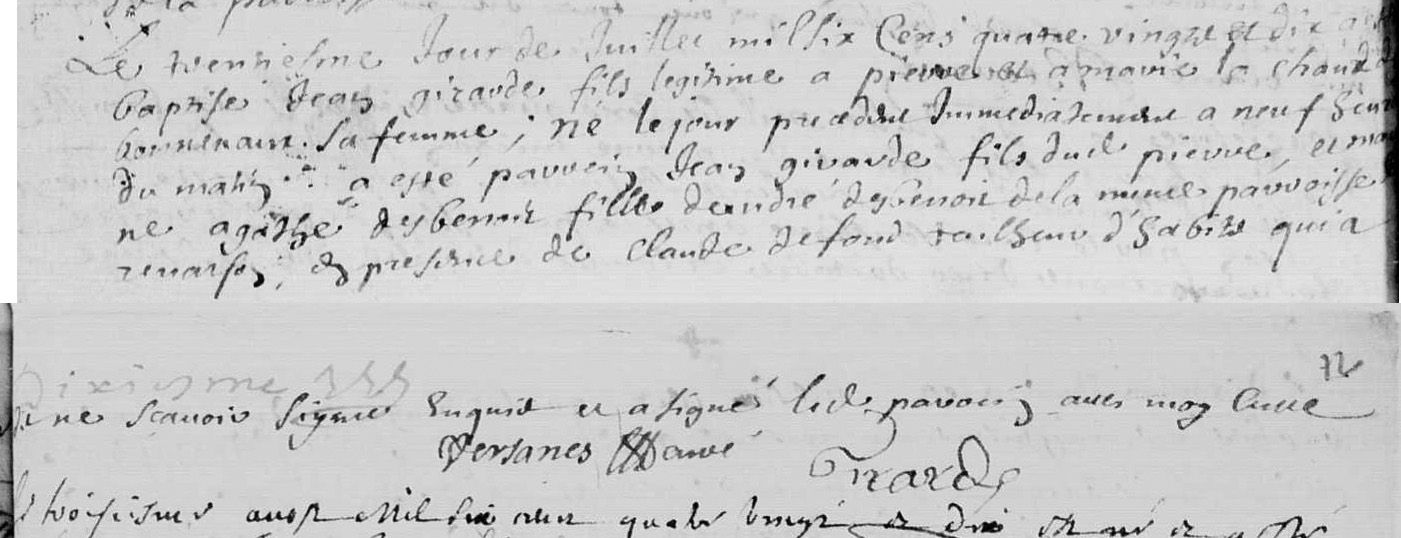 de la paroisse
Le trentiesme Jour de Juillet mil six Cens quatre vingts et dix a esté
baptise Jean girarde fils legitime a pierre et a marie la chaud
bonnenant sa femme, né le jour precedent Immediatement a neuf heur
du matin a esté parrein Jean girarde fils dud pierre, et mar
ne agathe desbenoit fille de andre desbenoit de la mesme parroisse
en presence de Claude defond tailheur d'habits qui a
Dixiesme
ne scavoir signer Enquis et a signé led. parrein avec moy Curé
Versanes Curé Girarde
troisiesme aoust mil six cens quatre vingt et dix est né et a esté